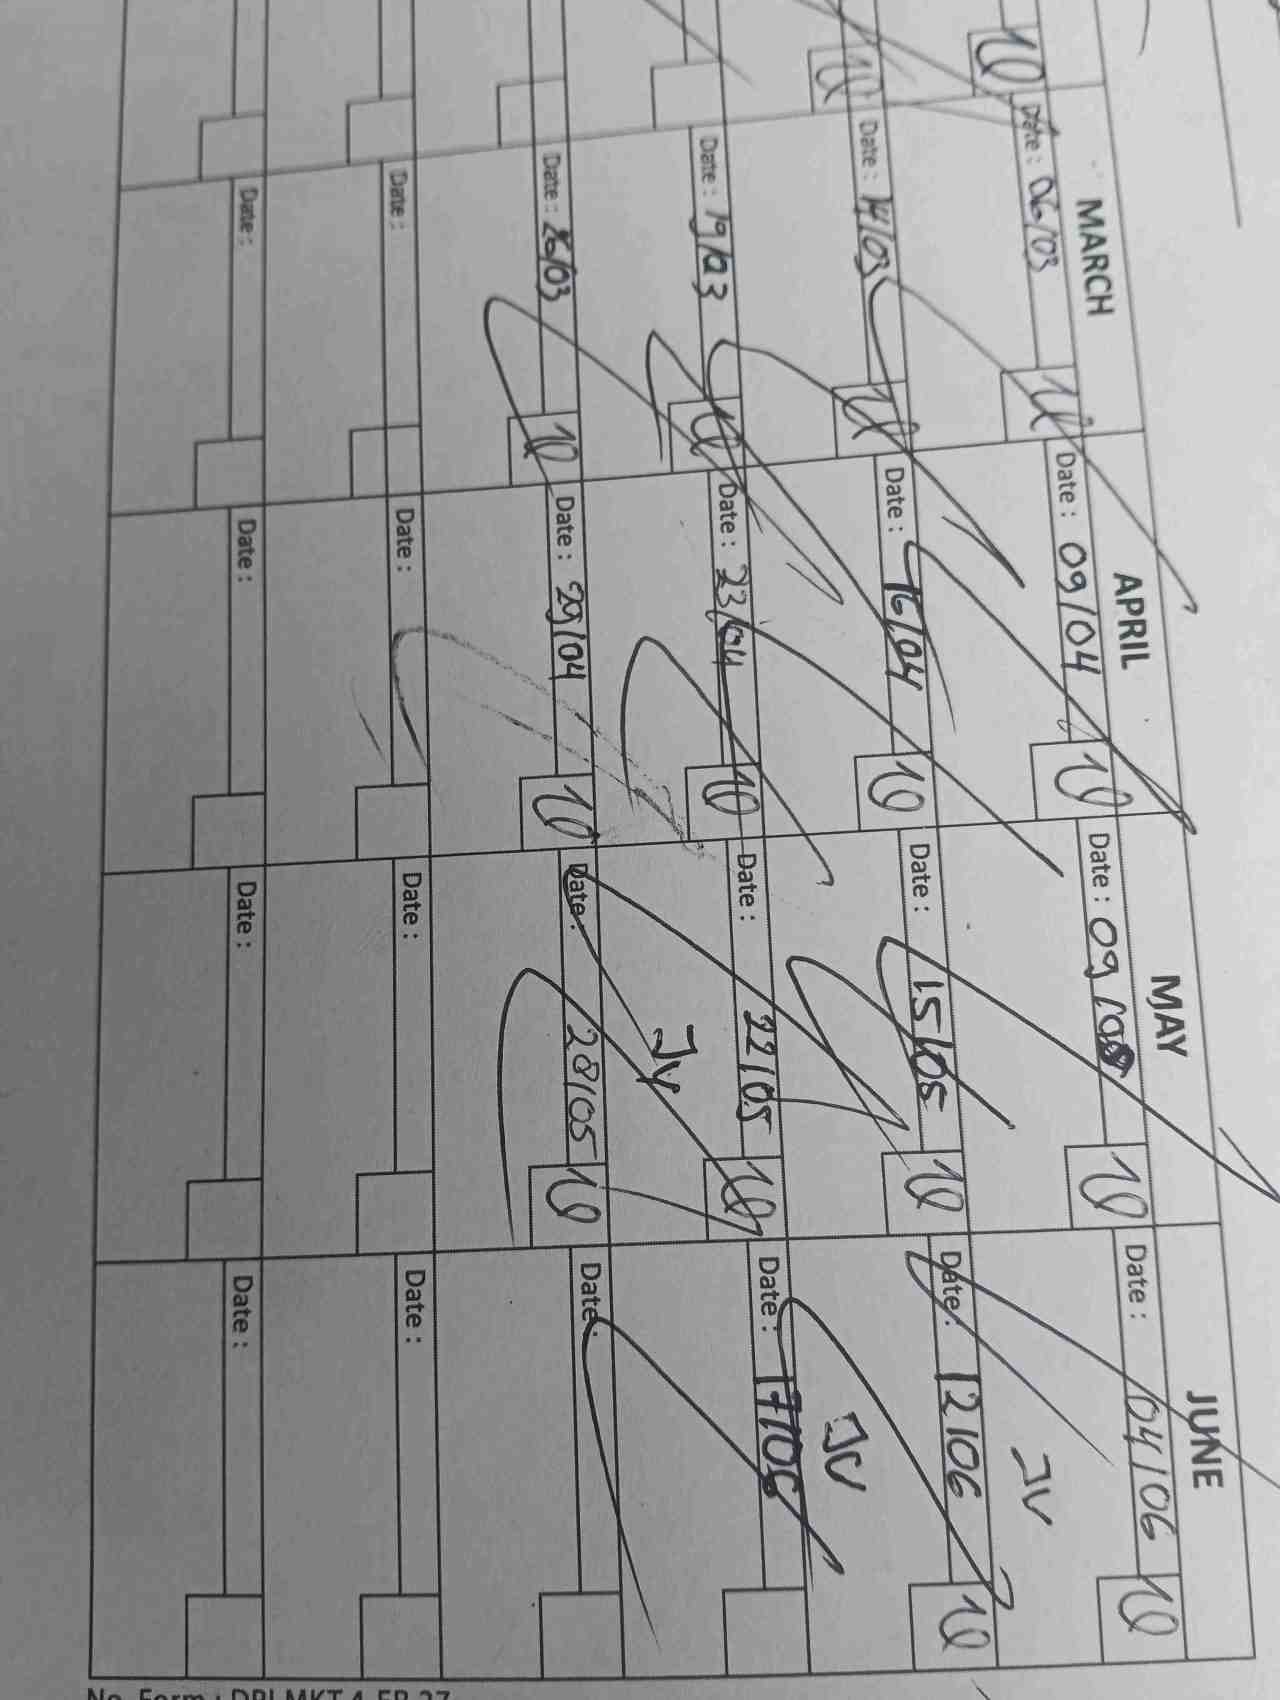 MARCH APRIL MAY JUNE
10 Date : 06/03 10 Date : 09/04 10 Date : 09/05 10 Date : 04/06 10
10 Date : 14/03 10 Date : 16/04 10 Date : 15/05 10 Date : 12/06 10
Date : 19/03 10 Date : 23/04 10 Date : 22/05 10 Date : 17/06
Date : 26/03 10 Date : 29/04 10 Date : 28/05 10 Date :
Date : Date : Date : Date :
Date : Date : Date : Date :
JV
JV
JV
No. Form :